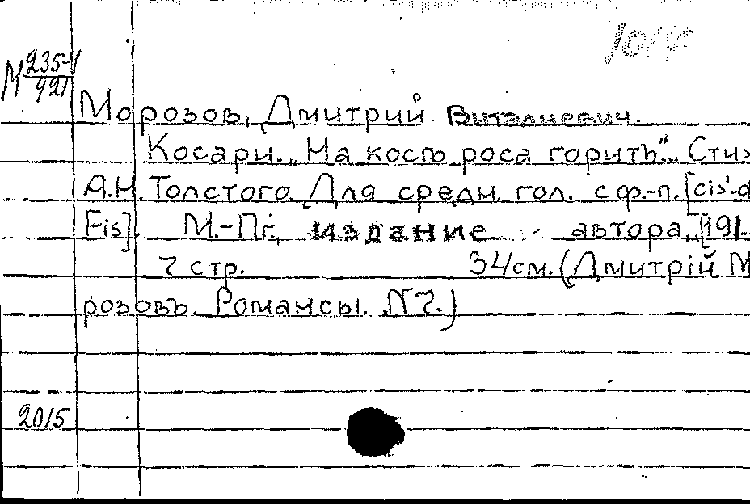 1014
М 235-V/921
Морозов, Дмитрий Виталиевич.
Косари. „На косъ роса горитъ". Сти
А.Н. Толстого. Для средн. гол. с ф.-п. [cis'-
Eis]. М.-Пг., издание автора, [191
7 стр. 34 см. (Дмитрій М
розовъ. Романсы. N7.)
2015